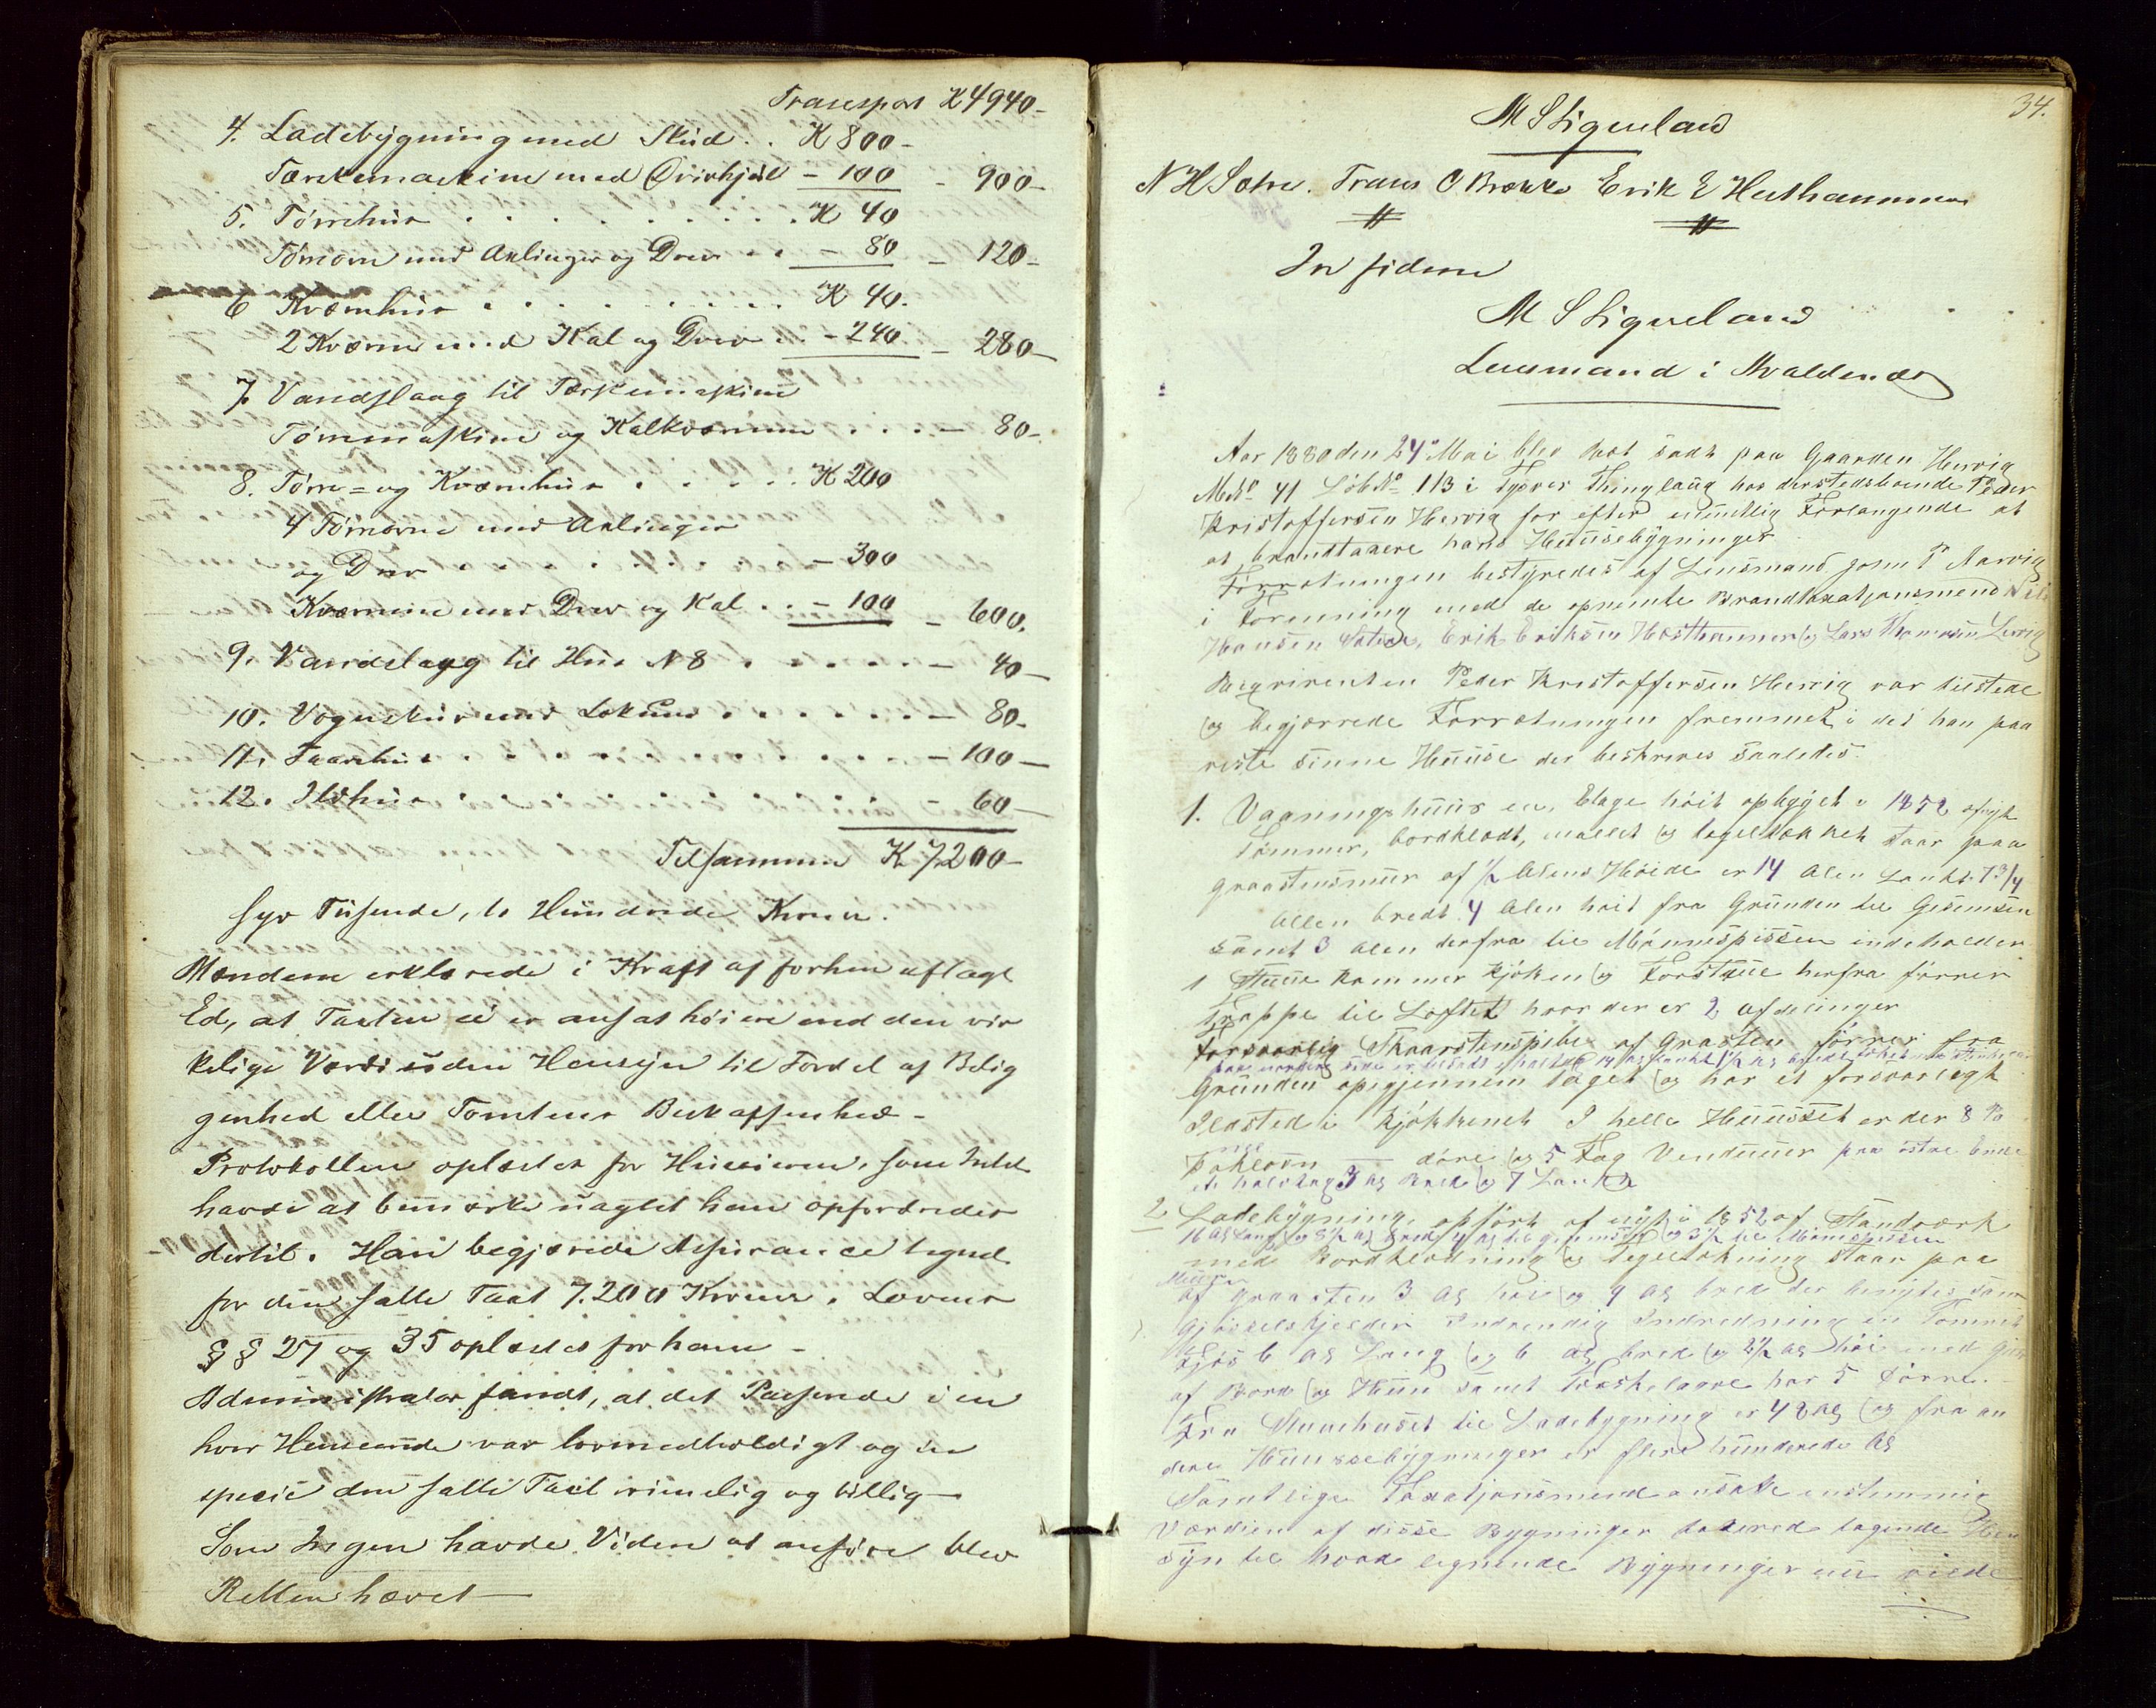 Transport K 4940-
4. Ladebygning med Skud . . K 800-
Tærskemaskine med Drivhjul - 100 - 900-
5. Tørrehus . . . . . . . . . K 40
Tørreovn med Avlinger og Drev . . - 80 - 120-
6 Kværnhus . . . . . . . . K 40.
2 Kværne med Kal og Drev . . - 240 - 280-
7. Vandslaag til Tærskemaskine
Tørremaskine og Kalkværnene . . . - 80-
8. Tørre= og Kværnhus . . . . . K 200
4 Tørreovne med Avlinger
og Drev . . . . . . . - 300
Kværnene med Drev og Kal . . - 100 - 600.
9. Vandslaug til Hus N 8 . . . . . . - 40-
10. Vognskur med Lokum . . . . . . . - 80-
11. Taarnhus . . . . . . . . . . - 100-
12. Ildhus . . . . . . . . . . - 60-
Tilsammen K 7200-
Syv Tusende, to Hundrede Kroner.
Mændene erklærede i Kraft af forhen aflagt
Ed, at Taxten ei er ansat høiere end den vir
kelige Værdi uden Hensyn til Fordel af Belig
genhed eller Tomtens Beskaffenhed-
Protokollen oplæstes for Huseieren, som Intet
havde at bemærke uagtet han opfordredes
dertil. Han begjærede Assurance tegnet
for den satte Taxt 7.200 Kroner. Lovens
§ § 27 og 35 oplæstes for ham-
Administrator fandt, at det Passerede i en
hver Henseende var lovmedholdigt og in
specie den satte Taxt rimelig og billig-
Som Ingen havde Viden at anføre blev
Retten hævet-
34.
M Stigueland
N H Sætre. Trans O Brække Erik E Hesthammer
In fidem
M Stigueland
Lensmand i Skoldende
Aar 1880 den 24de Mai blev Ret sadt paa Gaarden Hervig
M No 41 Løb No 113 i Tysvær Thinglaug hos derstedsboende Peder
Kristoffersen Hervig for efter mundtlig Forlangende at
at brandtaxere hans Huusebygninger
Forretningen bestyredes af Lensmand John P Aarvig
i Forening med de opnemte Brandtaxatjonsmend Nils
Hansen Sætre, Erik Eriksen Hesthammer og Lars Thomasen Lervig
Reqvirenten Peder Kristoffersen Hervig var tilstede
og begjærrede Forretningen fremmet i det han paa
viste sinne Huuse der beskreves saaledes.
1. Vaaningshuus en Etage høit opbygt i 1852 af nyt
Tømmer, bordklædt, mallet og tegeltækket staar paa
graastensmuur af 1/2 Alens Høide er 14 Alen Lankt 7 3/4
Allen bredt 4 Alen høit fra Grunden til Gesimsen
samt 3 Alen derfra til Mønnespissen indeholder
1 Stuue Kammer Kjøken og Forstuue herfra fører
Trappe til Loftet hvor der er 2 afdelinger
Forsvarlig Skaarstenspibe af Grasten fører fra
Grunden opigjennem Taget og har et forsvarlegt
Ildsted i Kjøkkenet I helle Huusset er der 8
døre og 5 Fag Venduuer paa østre Ende
et halvtag 3 Al Bred og 7 Lankt
2. Ladebygning, opført af nyt i 1852 af Standværk
16 Al Lang og 8 1/2 Al Bred 4 Al til gesimsen og 3 1/2 til Mønespissen
med Bordklædning og Tegeltækning staar paa
Muur af graasten 3 Al høi og 9 Al bred der benyttes som
Gjødselskjelder Indvendig Indredning en Tømret
Fjøs 6 Al Lang og 6 Al bred og 2 1/2 Al høi med
af Bord og Huus samt Træskelaave har 5 Dørre.
Fra Stuuehuset til Ladebygning er 48 Al og fra an
dere Huussebygninger er flere hunderede Al
Samtlige Taxatjonsmend ansatte enstemmig
Værdien af disse Bygninger taxered tagende Hen
syn til hvad lignende Bygninger nu